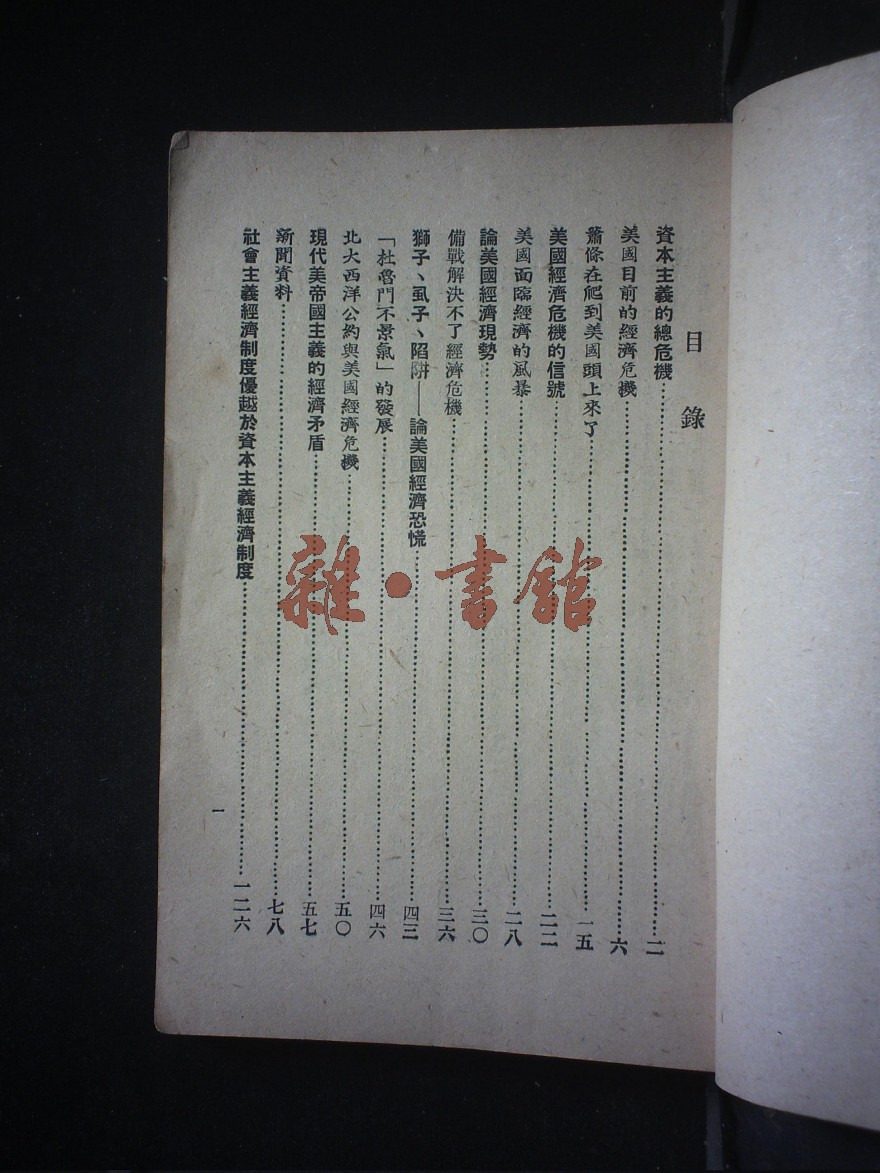 目錄
資本主義的總危機……二
美國目前的經濟危機……六
蕭條在爬到美國頭上來了……一五
美國經濟危機的信號……二二
美國面臨經濟的風暴……二八
論美國經濟現勢……三〇
備戰解決不了經濟危機……三六
獅子、虱子、陷阱——論美國經濟恐慌……四三
「杜魯門不景氣」的發展……四六
北大西洋公約與美國經濟危機……五〇
現代美帝國主義的經濟矛盾……五七
新聞資料……七八
社會主義經濟制度優越於資本主義經濟制度……一二六
一
雜·書館